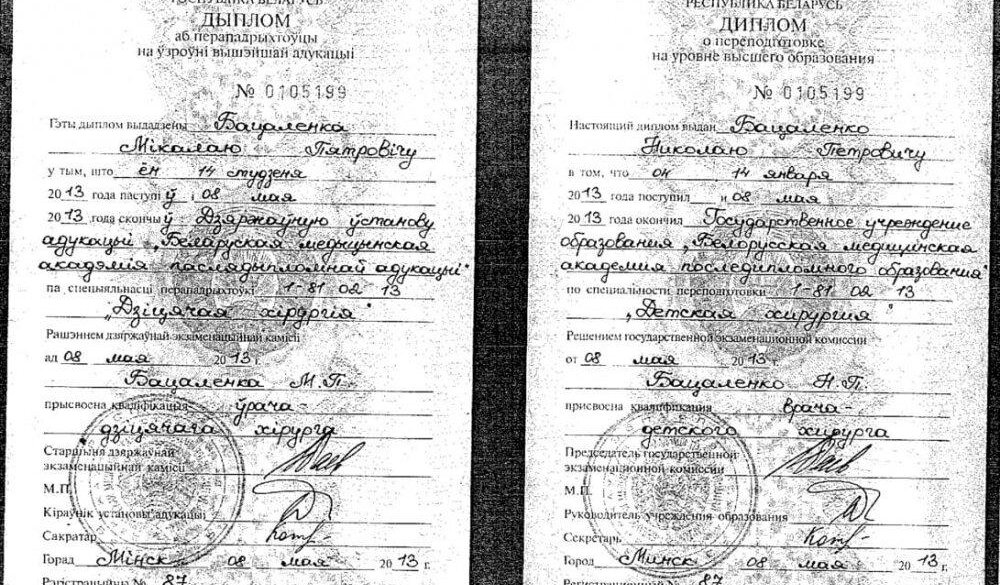 РЭСПУБЛІКА БЕЛАРУСЬ
ДЫПЛОМ
аб перападрыхтоўцы
на ўзроўні вышэйшай адукацыі
№ 0105199
Гэты дыплом выдадзены Бацаленка
Мікалаю Пятровічу
у тым, што ён 14 студзеня
2013 года паступіў і 08 мая
2013 года скончыў Дзяржаўную ўстанову
адукацыі „Беларуская медыцынская
акадэмія паслядыпломнай адукацыі"
па спецыяльнасці перападрыхтоўкі 1-81 02 13
„Дзіцячая хірургія"
Рашэннем дзяржаўнай экзаменацыйнай камісіі
ад 08 мая 2013 г.
Бацаленка М.П.
прысвоена кваліфікацыя ўрача-
дзіцячага хірурга
Старшыня дзяржаўнай
экзаменацыйнай камісіі
М.П.
Кіраўнік установы адукацыі
Сакратар
Горад Мінск 08 мая 2013 г.
Рэгістрацыйны № 87
РЕСПУБЛИКА БЕЛАРУСЬ
ДИПЛОМ
о переподготовке
на уровне высшего образования
№ 0105199
Настоящий диплом выдан Бацаленко
Николаю Петровичу
в том, что он 14 января
2013 года поступил и 08 мая
2013 года окончил Государственное учреждение
образования „Белорусская медицинская
академия последипломного образования"
по специальности переподготовки 1-81 02 13
„Детская хирургия"
Решением государственной экзаменационной комиссии
от 08 мая 2013 г.
Бацаленко Н.П.
присвоена квалификация врача-
детского хирурга
Председатель государственной
экзаменационной комиссии
М.П.
Руководитель учреждения образования
Секретарь
Город Минск 08 мая 2013 г.
Регистрационный № 87